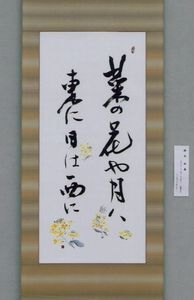 菜の花や月ハ
東に日は西に